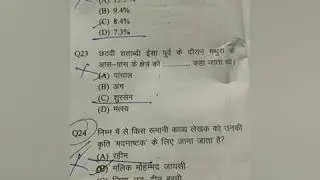 (B) 9.4%
(C) 8.4%
(D) 7.3%
Q23 छठवी शताब्दी ईसा पूर्व के दौरान मथुरा के
आस-पास के क्षेत्र को ______ कहा जाता था।
(A) पांचाल
(B) अंग
(C) शूरसेन
(D) मत्स्य
Q24 निम्न में से किस रूमानी काव्य लेखक को उनकी
कृति 'मदनाष्टक' के लिए जाना जाता है?
(A) रहीम
(B) मलिक मोहम्मद जायसी